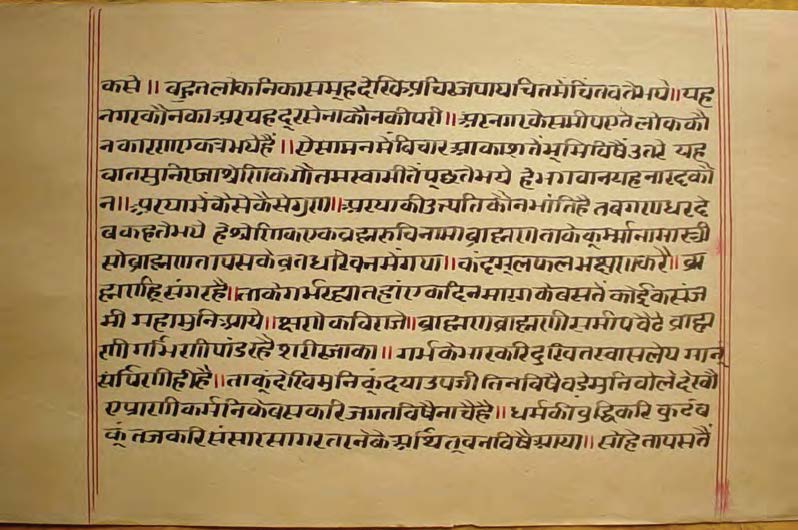 कसे ॥ बहुतलोकनिकासमूहदेखिअचिरजपायचितमेंचिंतवतेभये॥ यह
नगरकौनका अरयहदूरसेनाकौनकीपरी॥ अरनगरकेसमीपएतेलोककौ
नकारणएकत्रभयेहैं ॥ ऐसामनमेंविचारआकाशतेंभूमिविषैंउतरे यह
बातसुनिराजाश्रेणिकगौतमस्वामीतेंपूछतेभये हेभगवानयहनारदकौ
न॥ अरयामेंकैसेकैसेगुण॥ अरयाकीउत्पतिकौनभांतिहै तबगणधरदे
बकहतेभये हेश्रेणिकएकब्रह्मरुचिनामाब्राह्मणताकेकूर्म्मीनामास्त्री
सोब्राह्मणतापसकेव्रतधारिवनमेंगया॥ कंदमूलफलभक्षणकरै॥ ब्रा
ह्मणीहिसंगरहै॥ताकेगर्भरह्यातहांएकदिनमारगकेबसतें कोईकसंज
मी महामुनिआये॥ क्षणेकविराजे॥ ब्राह्मणब्राह्मणीसमीपबैठे ब्राह्म
णी गर्भिणीपांडरहैशरीरजाका॥ गर्भकेभारकरिदुखितस्वासलेय मानूं
सर्पिणीहीहै॥ ताकूंदेखिमुनिकूंदयाउपजी तिनविषैबडेमुनिबोलेदेखौ
एप्राणीकर्मनिकेबसकरिजगतविषैनाचैहै॥ धर्मकीबुद्धिकरि कुटंब
कूं तजकरिसंसारसागरतरनेकैअर्थितूबनविषैआया॥ सोहेतापसतैं